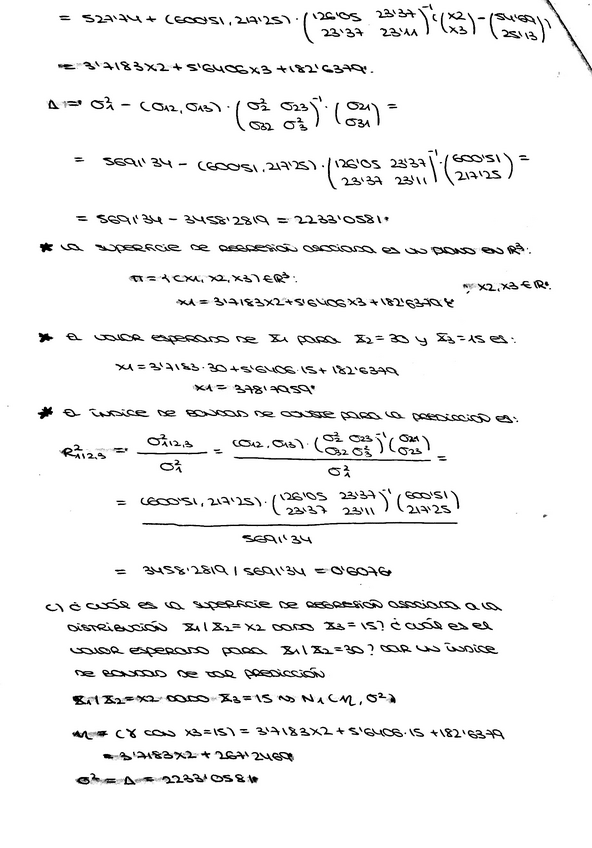 = 527'74 + (600'51, 217'25) · (126'05 23'37 / 23'37 23'11)⁻¹ ((x2 / x3) − (54'69 / 25'13))
= 3'7183x2 + 5'6406x3 + 182'6379.
Δ = σ²1 − (σ12, σ13) · (σ²2 σ23 / σ32 σ²3)⁻¹ · (σ21 / σ31) =
= 5691'34 − (600'51, 217'25) · (126'05 23'37 / 23'37 23'11)⁻¹ · (600'51 / 217'25) =
= 5691'34 − 3458'2819 = 2233'0581.
* La superficie de regresión asociada es un plano en R³:
π = {(x1, x2, x3) ∈ R³: x1 = 3'7183x2 + 5'6406x3 + 182'6379 ; x2, x3 ∈ R}.
* El valor esperado de X1 para X2=30 y X3=15 es:
x1 = 3'7183·30 + 5'6406·15 + 182'6379
x1 = 378'7959.
* El índice de bondad de ajuste para la predicción es:
R²1|2,3 = σ²1|2,3 / σ²1 = (σ12, σ13) · (σ²2 σ23 / σ32 σ²3)⁻¹ (σ21 / σ23) / σ²1 =
= (600'51, 217'25) · (126'05 23'37 / 23'37 23'11)⁻¹ (600'51 / 217'25) / 5691'34
= 3458'2819 / 5691'34 = 0'6076.
c) ¿cuál es la superficie de regresión asociada a la
distribución X1/X2=x2 dado X3=15? ¿cuál es el
valor esperado para X1/X2=30? Dar un índice
de bondad de tal predicción
X1/X2=x2 dado X3=15 ~> N1(M, σ²)
M = (γ con x3=15) = 3'7183x2 + 5'6406·15 + 182'6379
= 3'7183x2 + 267'2469.
σ² = Δ = 2233'0581.